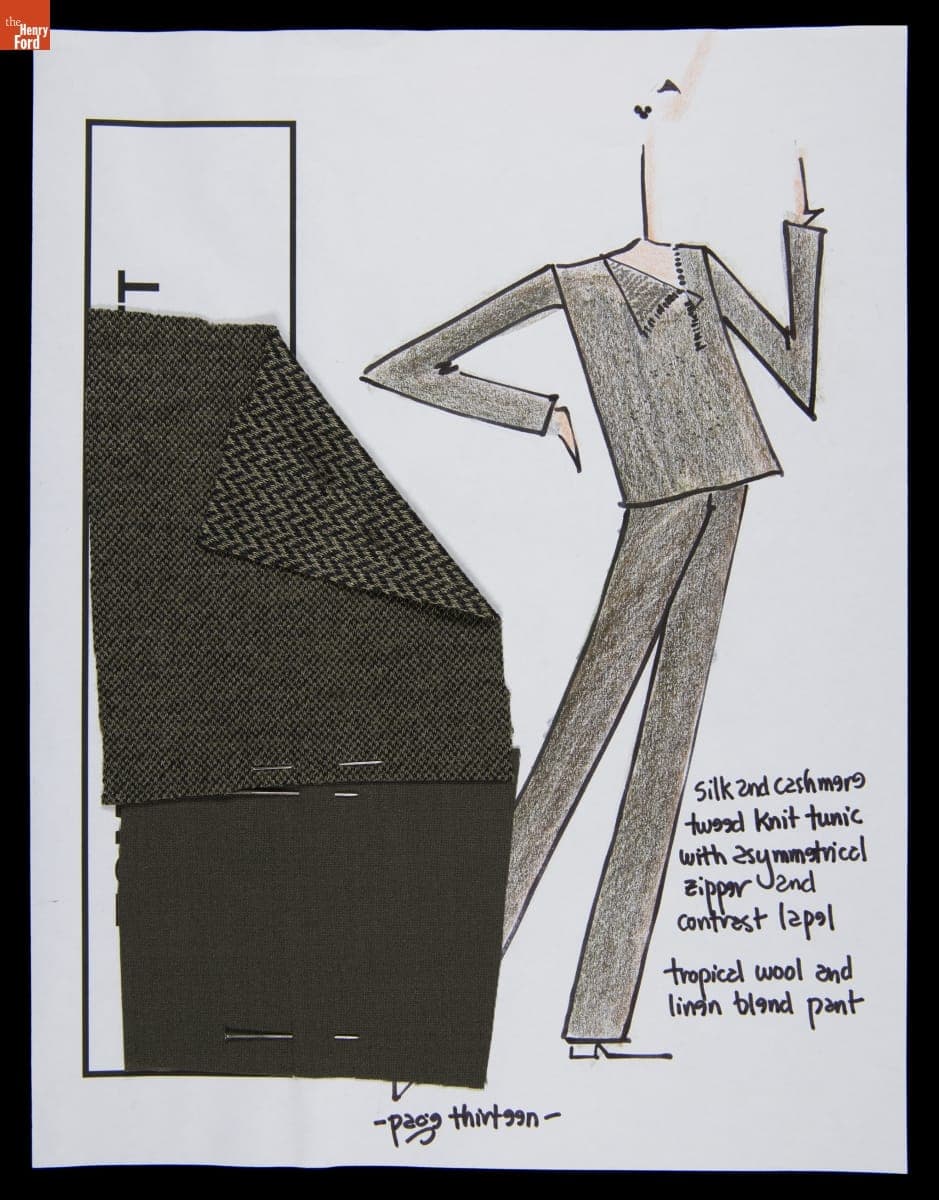 the
Henry
Ford
T
silk and cashmere
tweed knit tunic
with asymmetrical
zipper and
contrast lapel
tropical wool and
linen blend pant
-page thirteen-